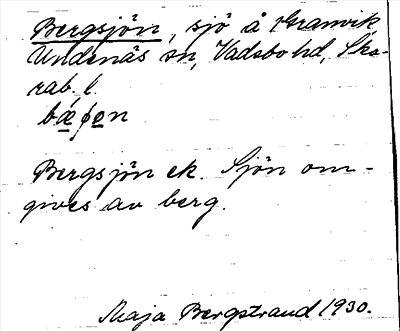 Bergsjön, sjö å Granvik,
Undenäs sn, Vadsbo hd, Ska-
rab. l.
Bergsjön ek. Sjön om-
gives av berg.
Maja Bergstrand 1930.